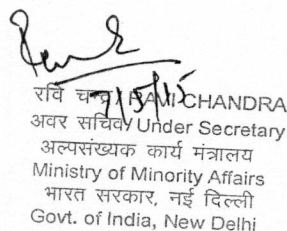 7/5/15
रवि चन्द्र/RAVI CHANDRA
अवर सचिव/Under Secretary
अल्पसंख्यक कार्य मंत्रालय
Ministry of Minority Affairs
भारत सरकार, नई दिल्ली
Govt. of India, New Delhi